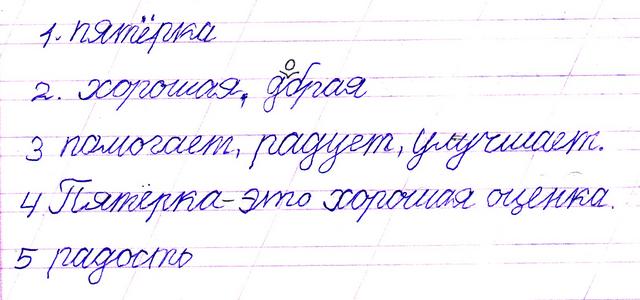 1. пятёрка
2. хорошая, добрая
3 памогает, радует, улучшает.
4 Пятёрка-это хорошая оценка.
5 радость